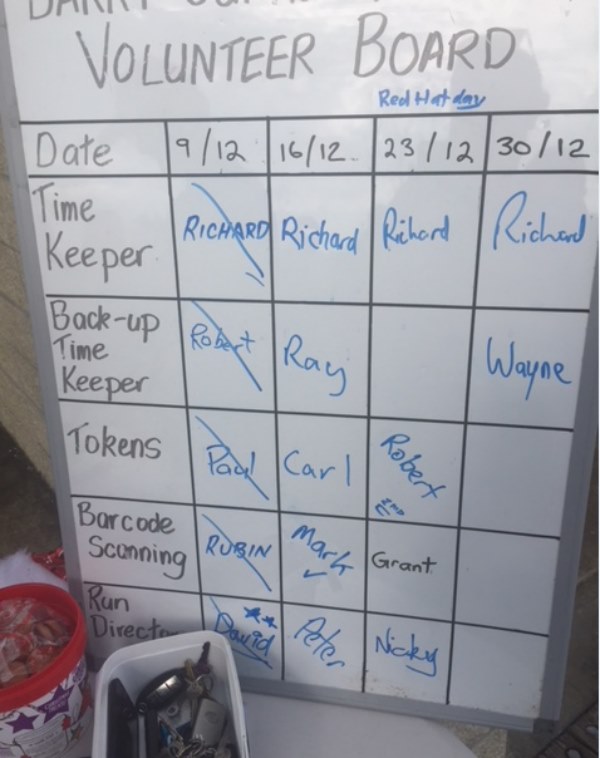 VOLUNTEER BOARD
Red Hat day
Date 9/12 16/12 23/12 30/12
Time
Keeper RICHARD Richard Richard Richard
Back-up
Time
Keeper Robert Ray Wayne
Tokens Paul Carl Robert
Barcode
Scanning RUBIN Mark Grant
Run
David Peter Nicky